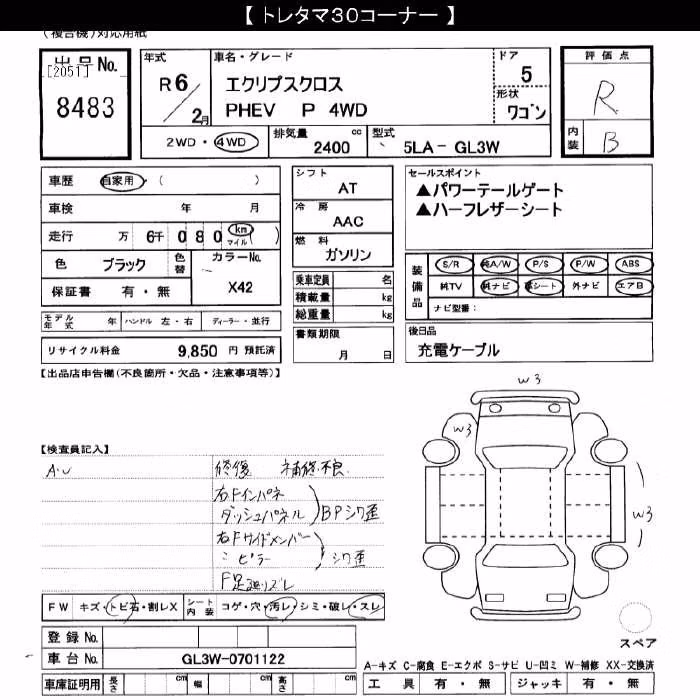 【 トレタマ30コーナー 】
(複合機)対応用紙
出品No. [2051] 8483
年式 R6/2月
車名・グレード
エクリプスクロス
PHEV P 4WD
ドア 5
形状 ワゴン
評価点 R
内装 B
2WD・4WD 排気量 2400 cc 型式 5LA-GL3W
車歴 自家用・( )
車検 年 月
走行 万 6千 0 8 0 km マイル ( )
色 ブラック 色替 カラーNo. X42
保証書 有・無
モデル年式 年 ハンドル 左・右 ディーラー・並行
リサイクル料金 9,850 円 預託済
シフト AT
冷房 AAC
燃料 ガソリン
乗車定員 名
積載量 kg
総重量 kg
書類期限
月 日
セールスポイント
▲パワーテールゲート
▲ハーフレザーシート
装備品
S/R 純A/W P/S P/W ABS
純TV 純ナビ 革シート 外ナビ エアB
ナビ型番:
後日品
充電ケーブル
【出品店申告欄(不良箇所・欠品・注意事項等)】
W3
W3
W3
【検査員記入】
A・U
修復 補修不良
右Fインパネ
ダッシュパネル BPシワ歪
右Fサイドメンバー
〃 ピラー シワ歪
F足廻りズレ
FW キズ・トビ石・割レX シート内装 コゲ・穴・汚レ・シミ・破レ・スレ
登録No.
車台No. GL3W-0701122
車庫証明用 長さ cm 幅 cm 高さ cm
スペア
A-キズ C-腐食 E-エクボ S-サビ U-凹ミ W-補修 XX-交換済
工具 有・無 ジャッキ 有・無